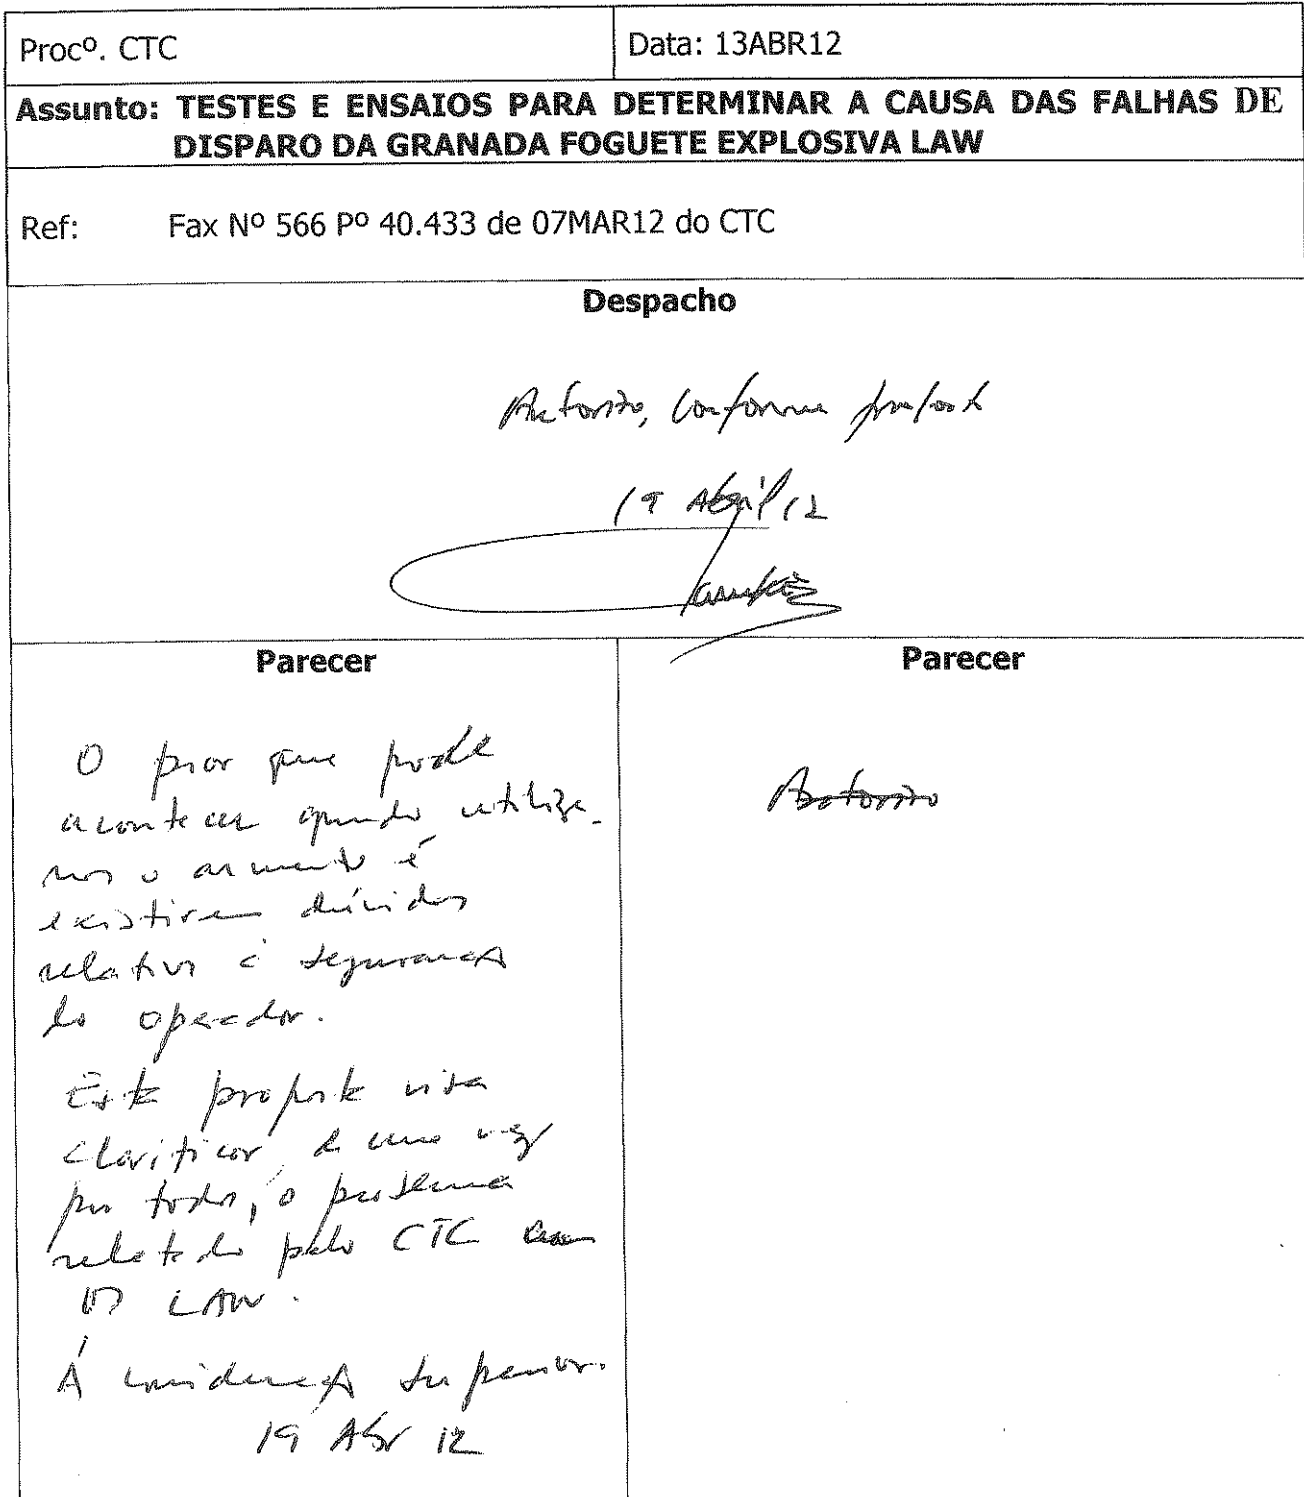 Procº. CTC
Data: 13ABR12
Assunto: TESTES E ENSAIOS PARA DETERMINAR A CAUSA DAS FALHAS DE
DISPARO DA GRANADA FOGUETE EXPLOSIVA LAW
Ref: Fax Nº 566 Pº 40.433 de 07MAR12 do CTC
Despacho
Autorizo, conforme proposto
19 Abril 12
Parecer
O pior que pode
acontecer quando utiliza-
mos o armamento é
existirem dúvidas
relativas à segurança
do operador.
Esta proposta visa
clarificar, de uma vez
por todas, o problema
relatado pelo CTC com
os LAW.
À consideração superior.
19 Abr 12
Parecer
Autorizo